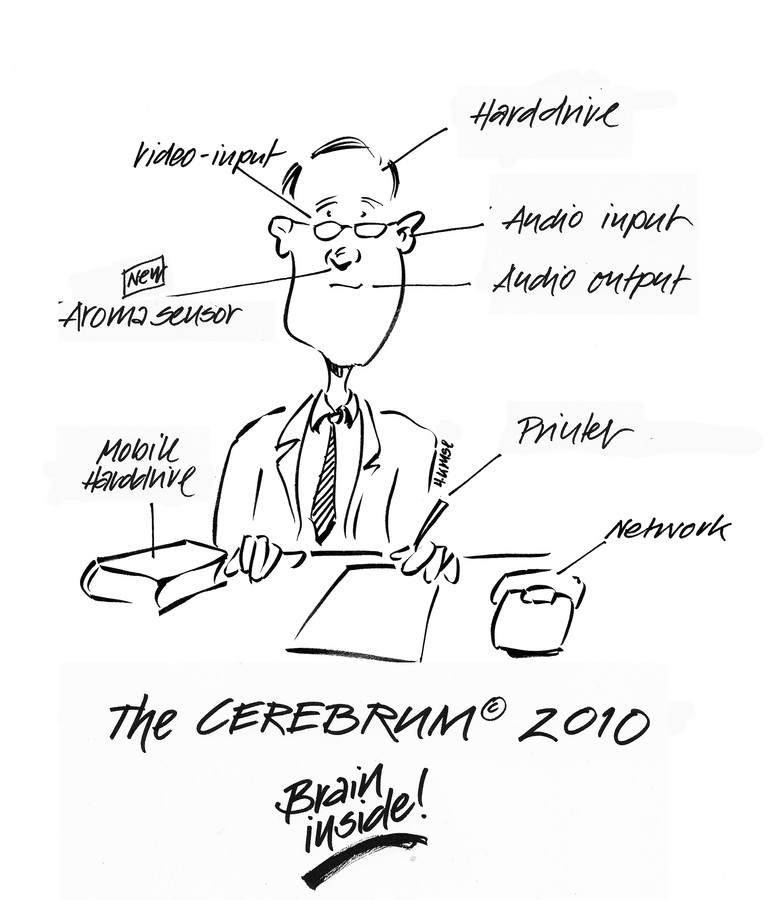 Harddrive
Video-input
Audio input
New
Audio output
Aromasensor
Printer
Mobile
Harddrive
H.KRUSE
Network
The CEREBRUM© 2010
Brain
inside!